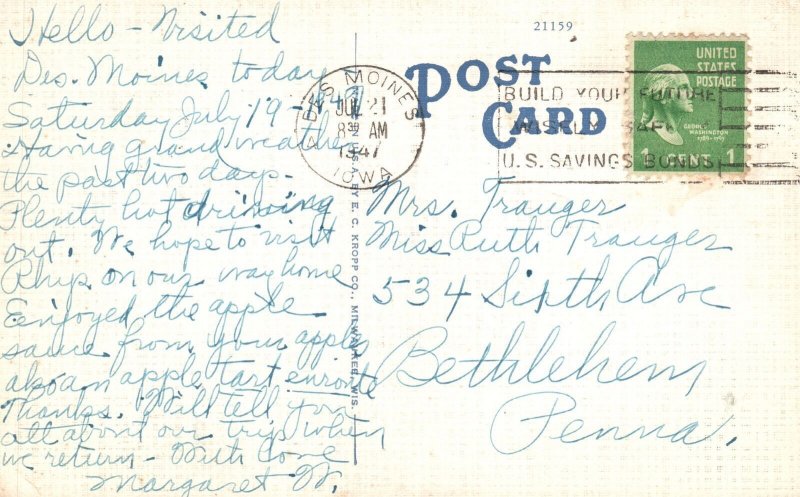 Hello - Visited
Des. Moines today
Saturday July 19 - 1947
Having grand weather
the past two days -
Plenty hot driving
out. We hope to visit
Rhys on our way home
Enjoyed the apple
sauce from your apples
also an apple tart enroute
Thanks. Will tell you
all about our trip when
we return - With Love
Margaret W.
21159
POST
CARD
DES MOINES
JUL 21
8 30 AM
1947
IOWA
BUILD YOUR FUTURE
WISELY SAFELY
U.S. SAVINGS BONDS
UNITED
STATES
POSTAGE
GEORGE
WASHINGTON
1789-1797
1 CENT 1
E. C. KROPP CO., MILWAUKEE, WIS.
Mrs. Trauger
Miss Ruth Trauger
534 Sixth Ave
Bethlehem
Penna.